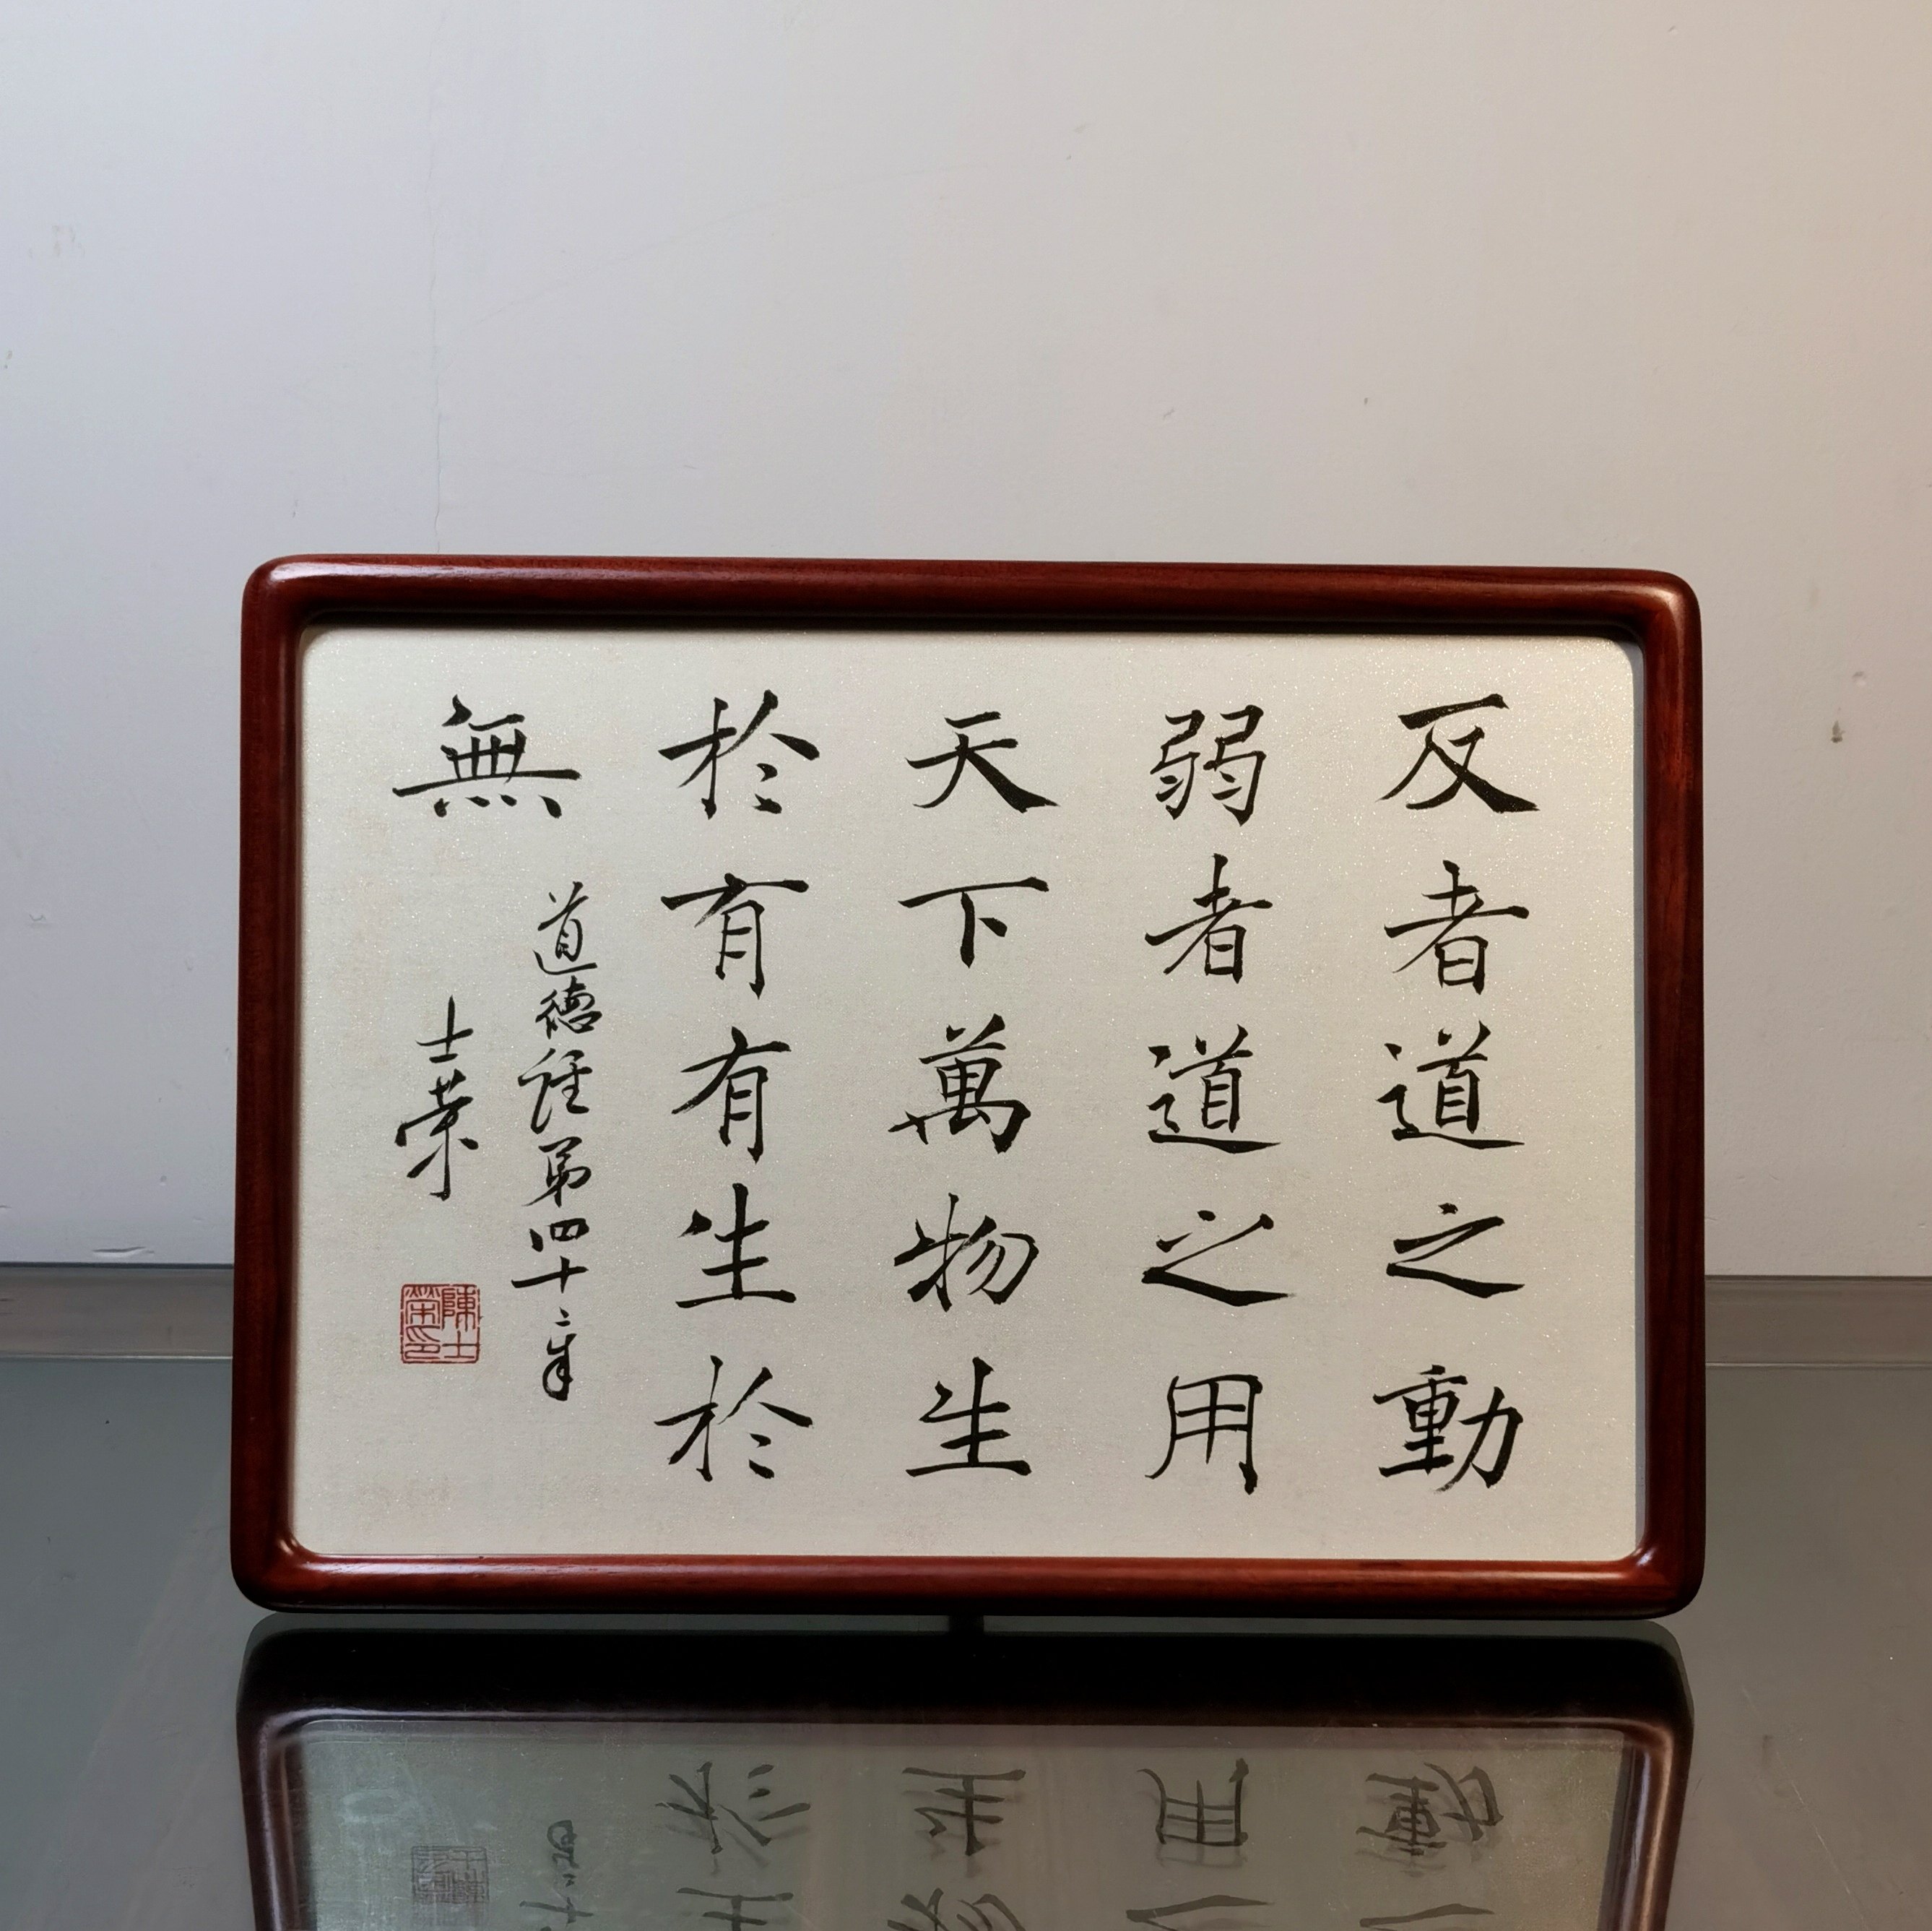 反者道之動
弱者道之用
天下萬物生
於有有生於
無
道德經第四十章
士榮
陳士榮印